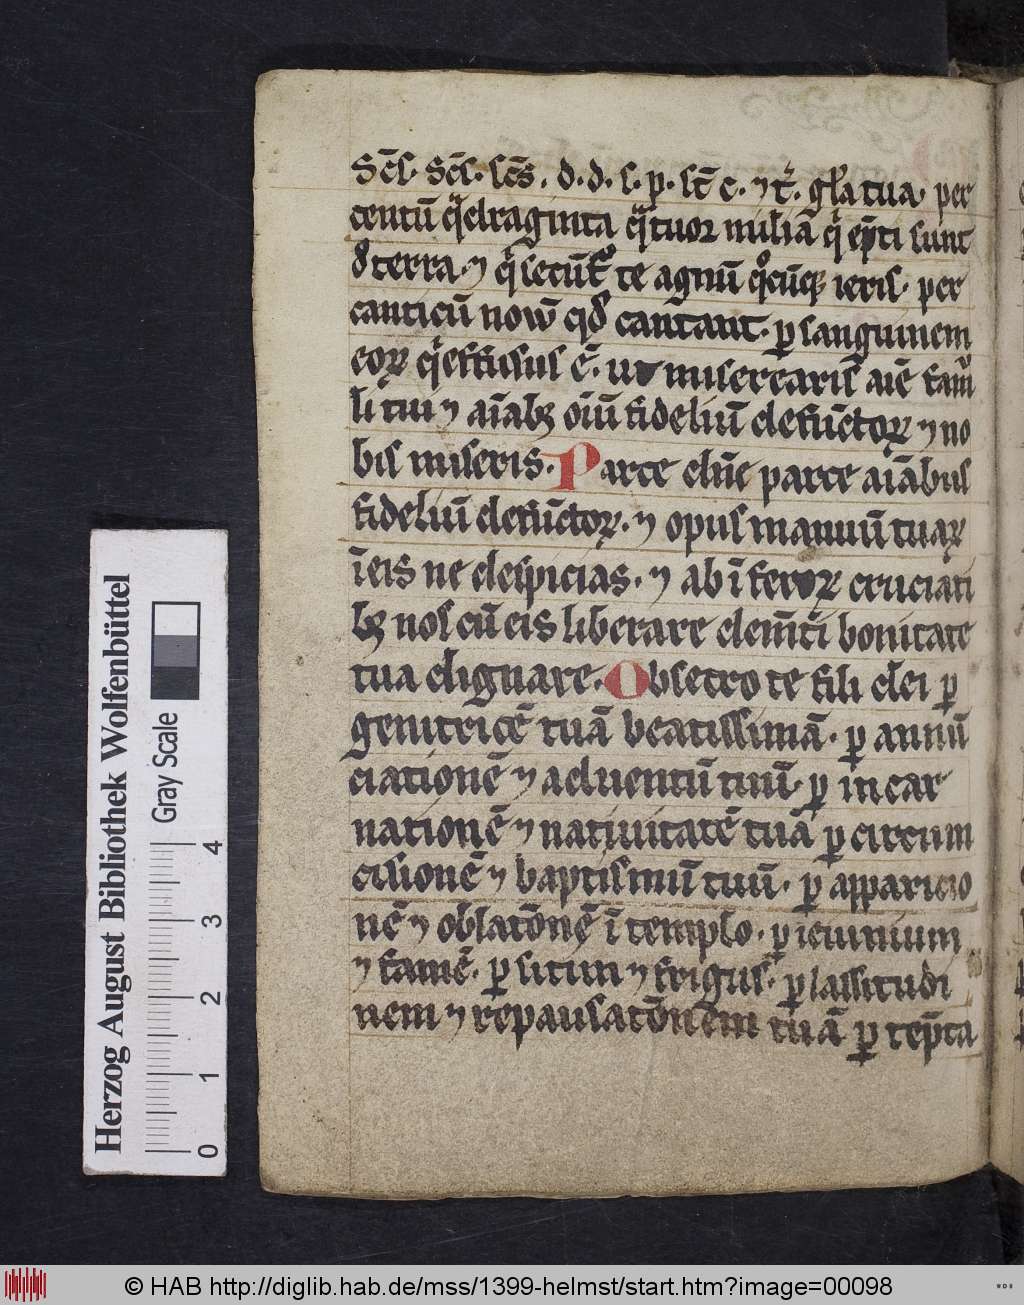 Sc̄s. Sc̄s. sc̄s. d. d. s. p. st̄ c. ⁊ t̄. gl̄a tua. per
centū qᷓdraginta qᷓtuor miliā qⁱ ēpti sunt
d̄ terra. ⁊ qⁱ secūt᷒ te agnū qͦcūqꝫ ieris. per
canticū nouū qd̄ cantant. ꝑ sanguinem
eoꝝ qⁱ effusus ē. ut miserearis aīe famu
li tui ⁊ aīabꝫ oīū fideliū defūctoꝝ ⁊ no
bis miseris. Parce dn̄e parce aīabus
fideliū defūctoꝝ. ⁊ opus manuū tuaꝝ
ī eis ne despicias. ⁊ ab īferoꝝ cruciati
bꝫ nos cū eis liberare clem̄ti bonitate
tua dignare. Obsecro te fili dei ꝑ
genitricē tuā beatissimā. ꝑ annū
ciationē ⁊ aduentū tuū. ꝑ incar
nationē ⁊ natiuitatē tuā ꝑ circum
cisionē ⁊ baptismū tuū. ꝑ apparicio
nē ⁊ oblatōnē ī templo. ꝑ ieiunium
⁊ famē. ꝑ sitim ⁊ frigus. ꝑ lassitudi
nem ⁊ repausatōnem tuā ꝑ tēpta
Herzog August Bibliothek Wolfenbüttel
Gray Scale
0 1 2 3 4
© HAB http://diglib.hab.de/mss/1399-helmst/start.htm?image=00098